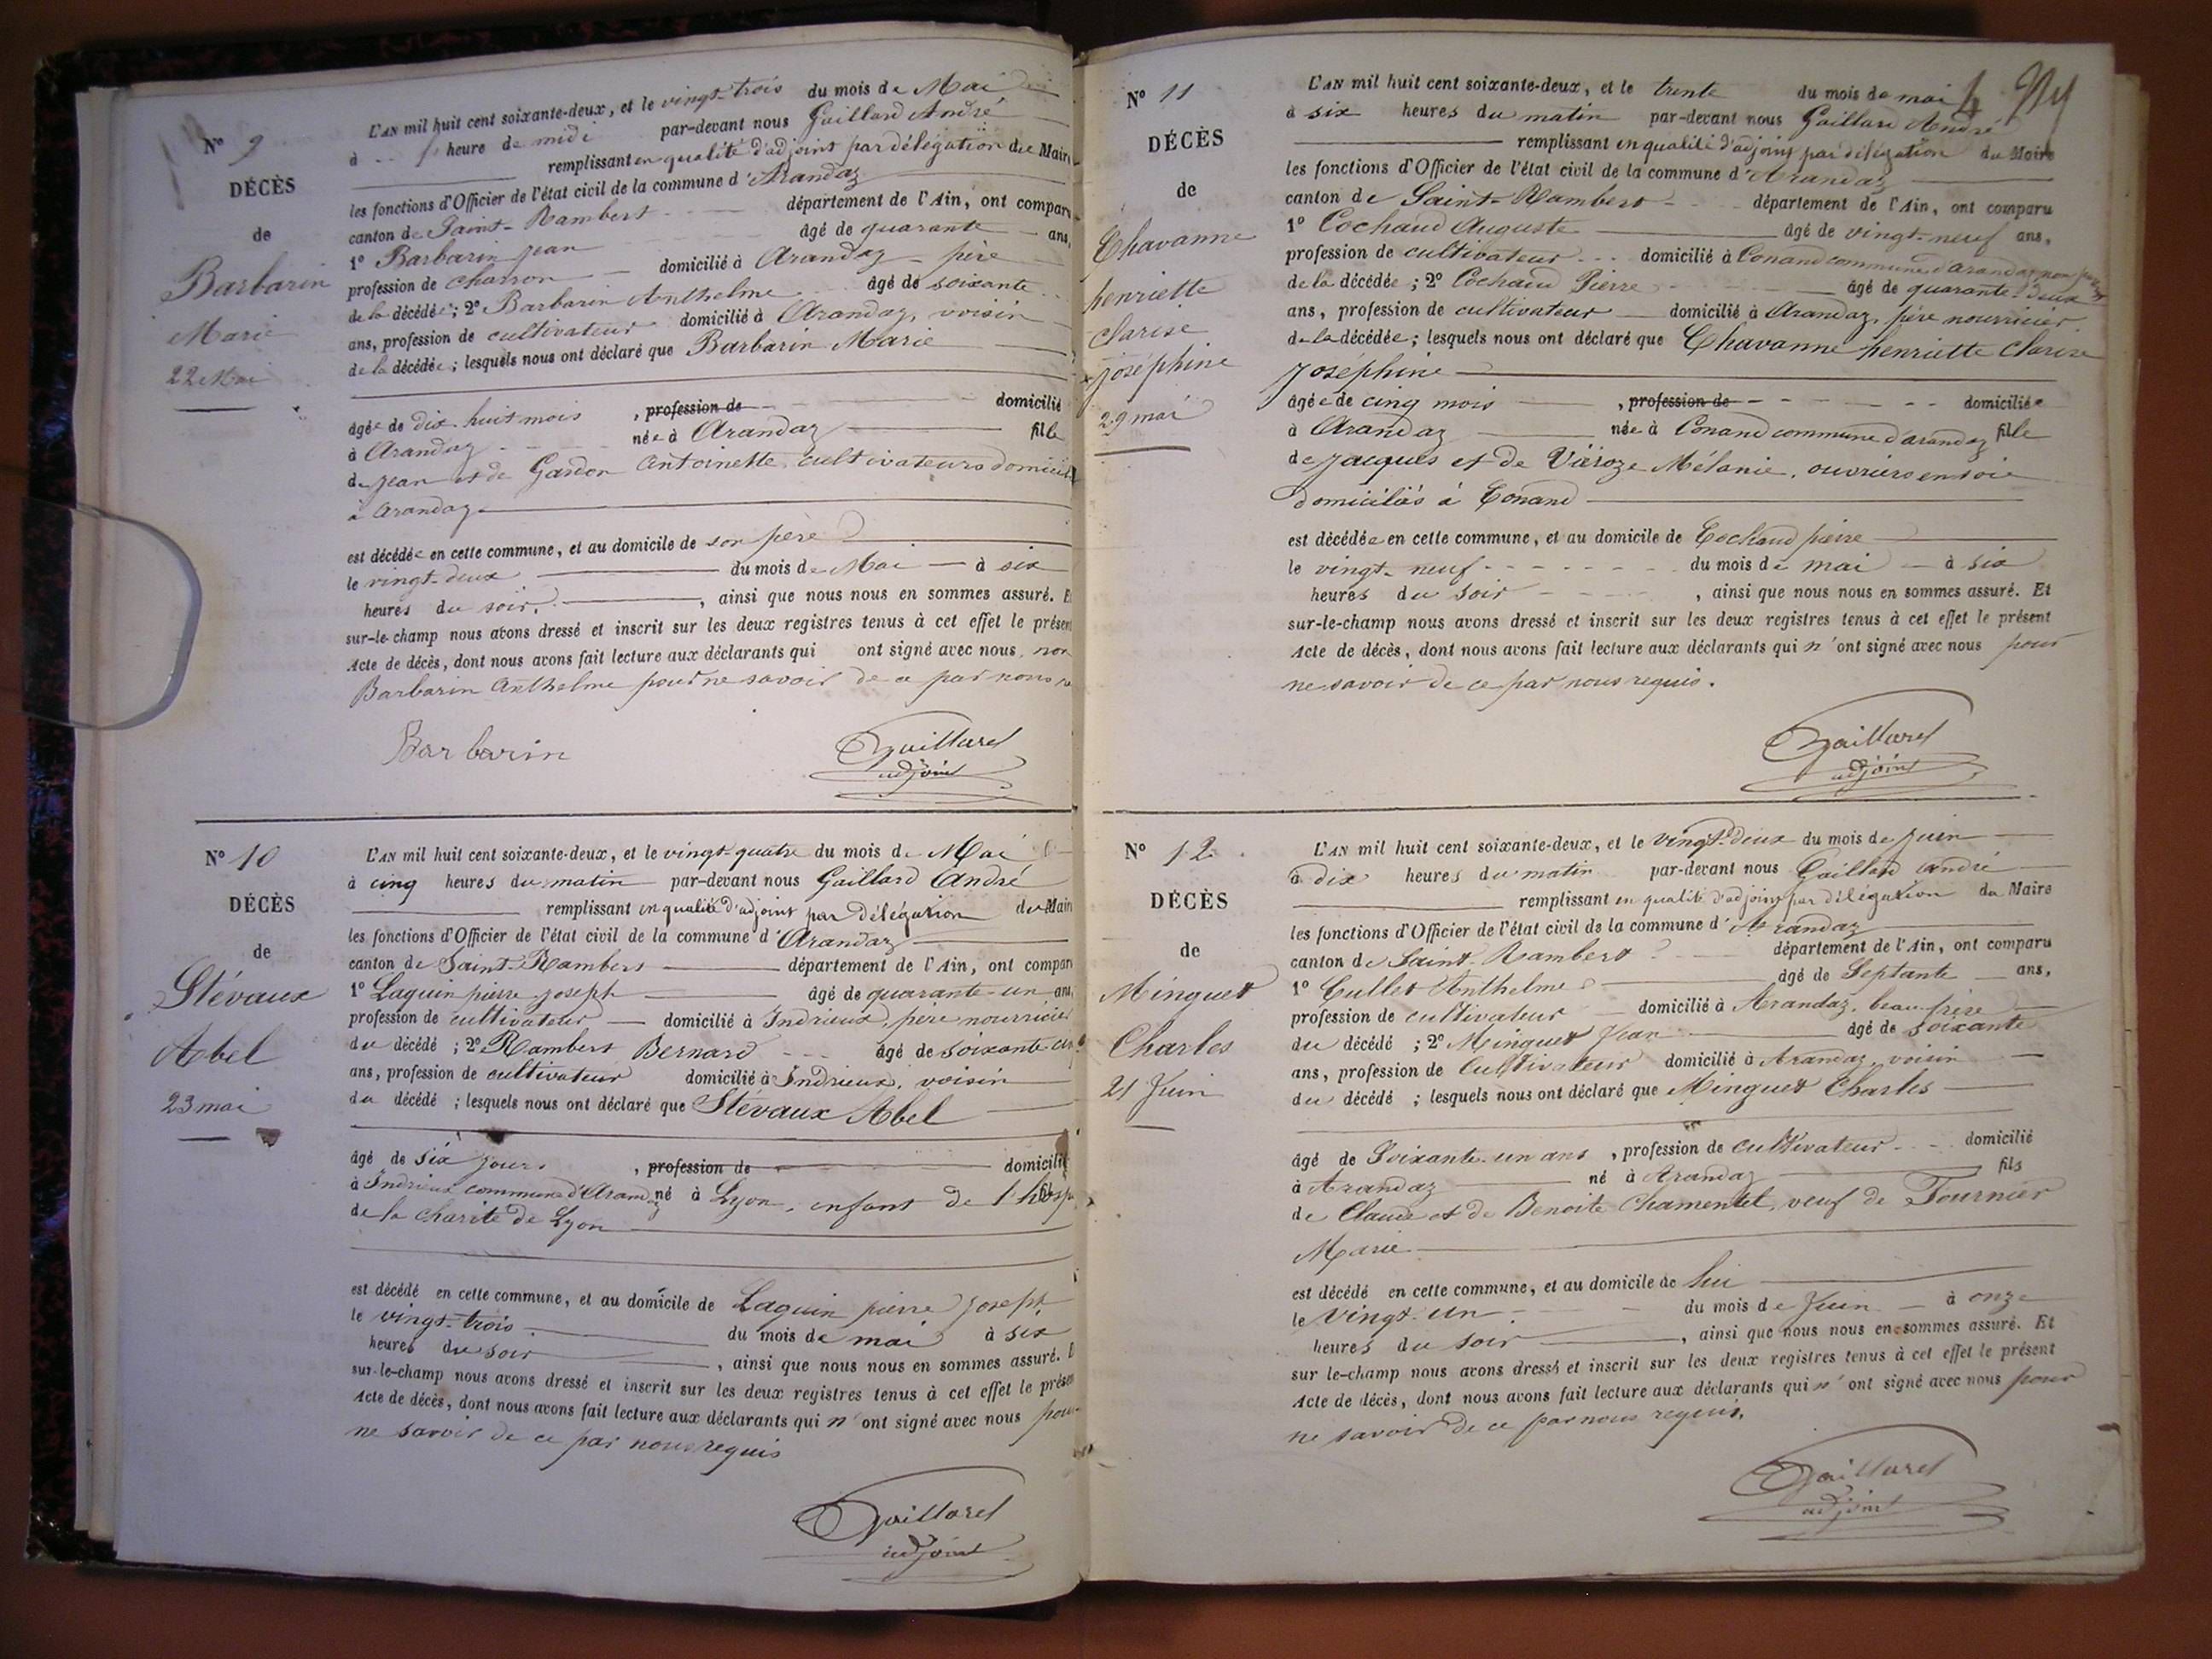 N° 9
DÉCÈS
de
Barbarin
Marie
22 Mai
L'AN mil huit cent soixante-deux, et le vingt-trois du mois de Mai
à heure de midi par-devant nous Gaillard André
remplissant en qualité d'adjoint par délégation du Maire
les fonctions d'Officier de l'état civil de la commune d'Arandaz
canton de Saint-Rambert département de l'Ain, ont comparu
1° Barbarin jean âgé de quarante ans,
profession de charron domicilié à Arandaz père
de la décédée ; 2° Barbarin Anthelme âgé de soixante
ans, profession de cultivateur domicilié à Arandaz, voisin
de la décédée ; lesquels nous ont déclaré que Barbarin Marie
âgée de dix huit mois , profession de domicilié
à Arandaz née à Arandaz fille
de jean et de Gardon Antoinette, cultivateurs domicil
à arandaz
est décédée en cette commune, et au domicile de son père
le vingt-deux du mois de Mai à six
heures du soir. , ainsi que nous nous en sommes assuré. E
sur-le-champ nous avons dressé et inscrit sur les deux registres tenus à cet effet le présent
Acte de décès, dont nous avons fait lecture aux déclarants qui ont signé avec nous, non
Barbarin Anthelme pour ne savoir de ce par nous
Barbarin
Gaillard
adjoint
N° 10
DÉCÈS
de
Stévaux
Abel
23 mai
L'AN mil huit cent soixante-deux, et le vingt-quatre du mois de Mai
à cinq heures du matin par-devant nous Gaillard André
remplissant en qualité d'adjoint par Délégation du Maire
les fonctions d'Officier de l'état civil de la commune d'Arandaz
canton de Saint-Rambert département de l'Ain, ont comparu
1° Laguin pierre joseph âgé de quarante-un ans,
profession de cultivateur domicilié à Indrieux, père nourricier
du décédé ; 2° Rambert Bernard âgé de soixante cinq
ans, profession de cultivateur domicilié à Indrieux, voisin
du décédé ; lesquels nous ont déclaré que Stévaux Abel
âgé de six jours , profession de domicilié
à Indrieux commune d'Arandaz né à Lyon, enfant de l'hosp
de la charité de Lyon
est décédé en cette commune, et au domicile de Laguin pierre joseph
le vingt-trois du mois de mai à six
heures du soir , ainsi que nous nous en sommes assuré. E
sur-le-champ nous avons dressé et inscrit sur les deux registres tenus à cet effet le présent
Acte de décès, dont nous avons fait lecture aux déclarants qui n'ont signé avec nous pour
ne savoir de ce par nous requis
Gaillard
adjoint
N° 11
DÉCÈS
de
Chavanne
henriette
clarise
joséphine
29 mai
L'AN mil huit cent soixante-deux, et le trente du mois de mai
à six heures du matin par-devant nous Gaillard André
remplissant en qualité d'adjoint par délégation du Maire
les fonctions d'Officier de l'état civil de la commune d'Arandaz
canton de Saint-Rambert département de l'Ain, ont comparu
1° Cochaud Auguste âgé de vingt-neuf ans,
profession de cultivateur domicilié à Conand commune d'arandaz non
de la décédée ; 2° Cochaud Pierre âgé de quarante-deux
ans, profession de cultivateur domicilié à Arandaz, père nourricier
de la décédée ; lesquels nous ont déclaré que Chavanne henriette clarise
Joséphine
âgée de cinq mois , profession de domiciliée
à Arandaz née à Conand commune d'arandaz fille
de jacques et de Varoze Mélanie, ouvriers en soie
domiciliés à Conand
est décédée en cette commune, et au domicile de Cochaud pierre
le vingt-neuf du mois de mai à six
heures du soir , ainsi que nous nous en sommes assuré. Et
sur-le-champ nous avons dressé et inscrit sur les deux registres tenus à cet effet le présent
Acte de décès, dont nous avons fait lecture aux déclarants qui n'ont signé avec nous pour
ne savoir de ce par nous requis.
Gaillard
adjoint
N° 12
DÉCÈS
de
Minguet
Charles
21 Juin
L'AN mil huit cent soixante-deux, et le vingt-deux du mois de juin
à dix heures du matin par-devant nous Gaillard André
remplissant en qualité d'adjoint par délégation du Maire
les fonctions d'Officier de l'état civil de la commune d'Arandaz
canton de Saint-Rambert département de l'Ain, ont comparu
1° Cullet Anthelme âgé de Septante ans,
profession de cultivateur domicilié à Arandaz, beau frère
du décédé ; 2° Minguet Jean âgé de soixante
ans, profession de Cultivateur domicilié à Arandaz, voisin
du décédé ; lesquels nous ont déclaré que Minguet Charles
âgé de Soixante-un ans , profession de cultivateur domicilié
à Arandaz né à Arandaz fils
de Claude et de Benoite Chamentel, veuf de Fournier
Marie
est décédé en cette commune, et au domicile de lui
le Vingt-un du mois de Juin à onze
heures du soir , ainsi que nous nous en sommes assuré. Et
sur-le-champ nous avons dressé et inscrit sur les deux registres tenus à cet effet le présent
Acte de décès, dont nous avons fait lecture aux déclarants qui n'ont signé avec nous pour
ne savoir de ce par nous requis.
Gaillard
adjoint